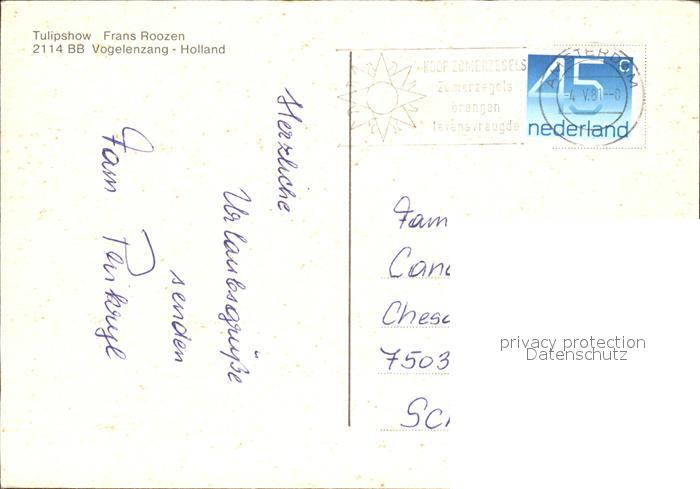 Tulipshow Frans Roozen
2114 BB Vogelenzang - Holland
KOOP ZOMERZEGELS
Zomerzegels
brengen
levensvreugde
AMSTERDAM
-4.V.81--0
45c
nederland
Herzliche
Urlaubsgrüße
senden
Fam
Fam
Chesa
7503
privacy protection
Datenschutz